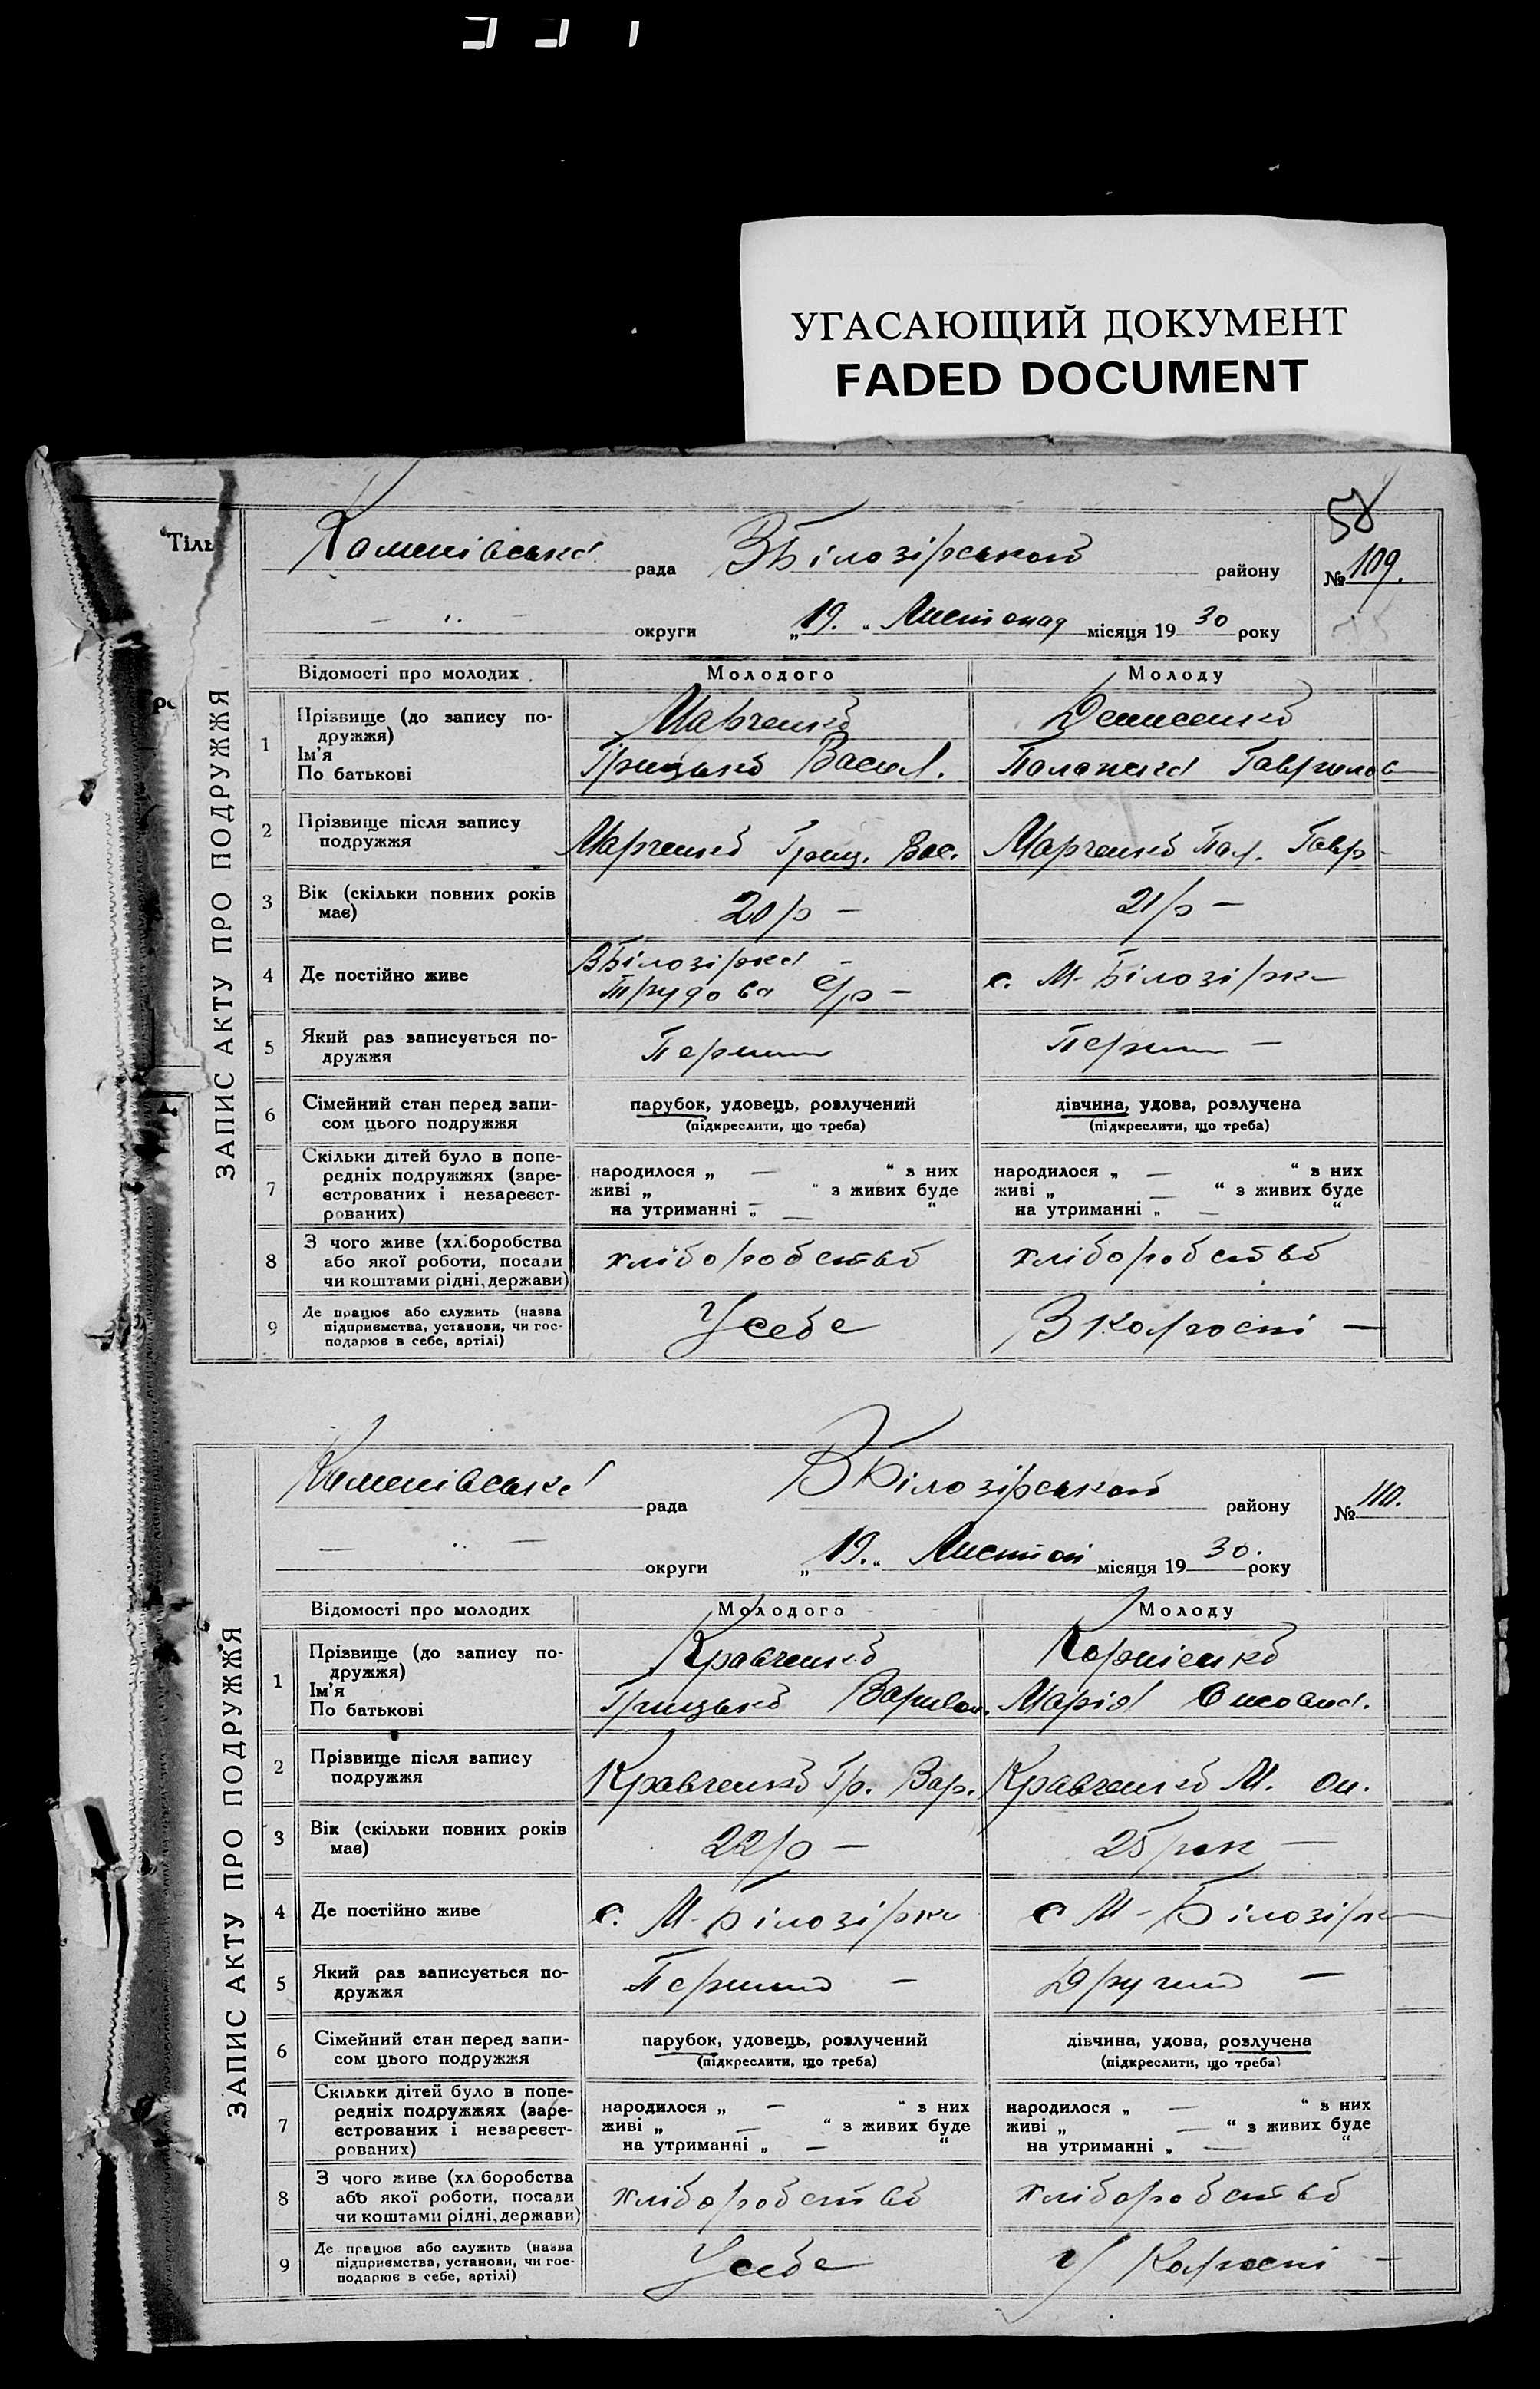 УГАСАЮЩИЙ ДОКУМЕНТ
FADED DOCUMENT
"Тіль
58
ЗАПИС АКТУ ПРО ПОДРУЖЖЯ
Каменівська рада ВБілозірской району № 109.
— " — округи „19. “ Листопад місяця 1930 року
Відомості про молодих Молодого Молоду
1 Прізвище (до запису по- Марченко Денисенко
дружжя)
Ім'я Грицько Васил. Палажка Гаврилов
По батькові
2 Прізвище після запису Марченко Гриц. Вас. Марченко Пал. Гавр
подружжя
3 Вік (скільки повних років 20/р — 21/р —
має)
4 Де постійно живе ВБілозірка — с. М-Білозірка
Трудова с/р —
5 Який раз записується по- Перший Перший —
дружжя
6 Сімейний стан перед запи- парубок, удовець, розлучений дівчина, удова, розлучена
сом цього подружжя (підкреслити, що треба) (підкреслити, що треба)
7 Скільки дітей було в попе-
редніх подружжях (заре- народилося „ — “ з них народилося „ — “ з них
єстрованих і незареєст- живі „ — “ з живих буде живі „ — “ з живих буде
рованих) на утриманні „ — “ на утриманні „ — “
8 З чого живе (хліборобства хліборобство хліборобство
або якої роботи, посади
чи коштами рідні, держави)
9 Де працює або служить (назва Усебе В Колгоспі —
підприємства, установи, чи гос-
подарює в себе, артілі)
ЗАПИС АКТУ ПРО ПОДРУЖЖЯ
Каменівська рада ВБілозірской району № 110.
— " — округи „19. “ Листоп місяця 1930. року
Відомості про молодих Молодого Молоду
1 Прізвище (до запису по- Кравченко Корнієнко
дружжя)
Ім'я Грицько Варивон. Марія
По батькові
2 Прізвище після запису Кравченко Гр. Вар. Кравченко М. Он.
подружжя
3 Вік (скільки повних років 22/р — 25 рок —
має)
4 Де постійно живе с. М-Білозірка с М-Білозірк
5 Який раз записується по- Перший — Другий —
дружжя
6 Сімейний стан перед запи- парубок, удовець, розлучений дівчина, удова, розлучена
сом цього подружжя (підкреслити, що треба) (підкреслити, що треба)
7 Скільки дітей було в попе-
редніх подружжях (заре- народилося „ — “ з них народилося „ — “ з них
єстрованих і незареєст- живі „ — “ з живих буде живі „ — “ з живих буде
рованих) на утриманні „ — “ на утриманні „ — “
8 З чого живе (хліборобства хліборобство хліборобство
або якої роботи, посади
чи коштами рідні, держави)
9 Де працює або служить (назва Усебе У Колгоспі —
підприємства, установи, чи гос-
подарює в себе, артілі)